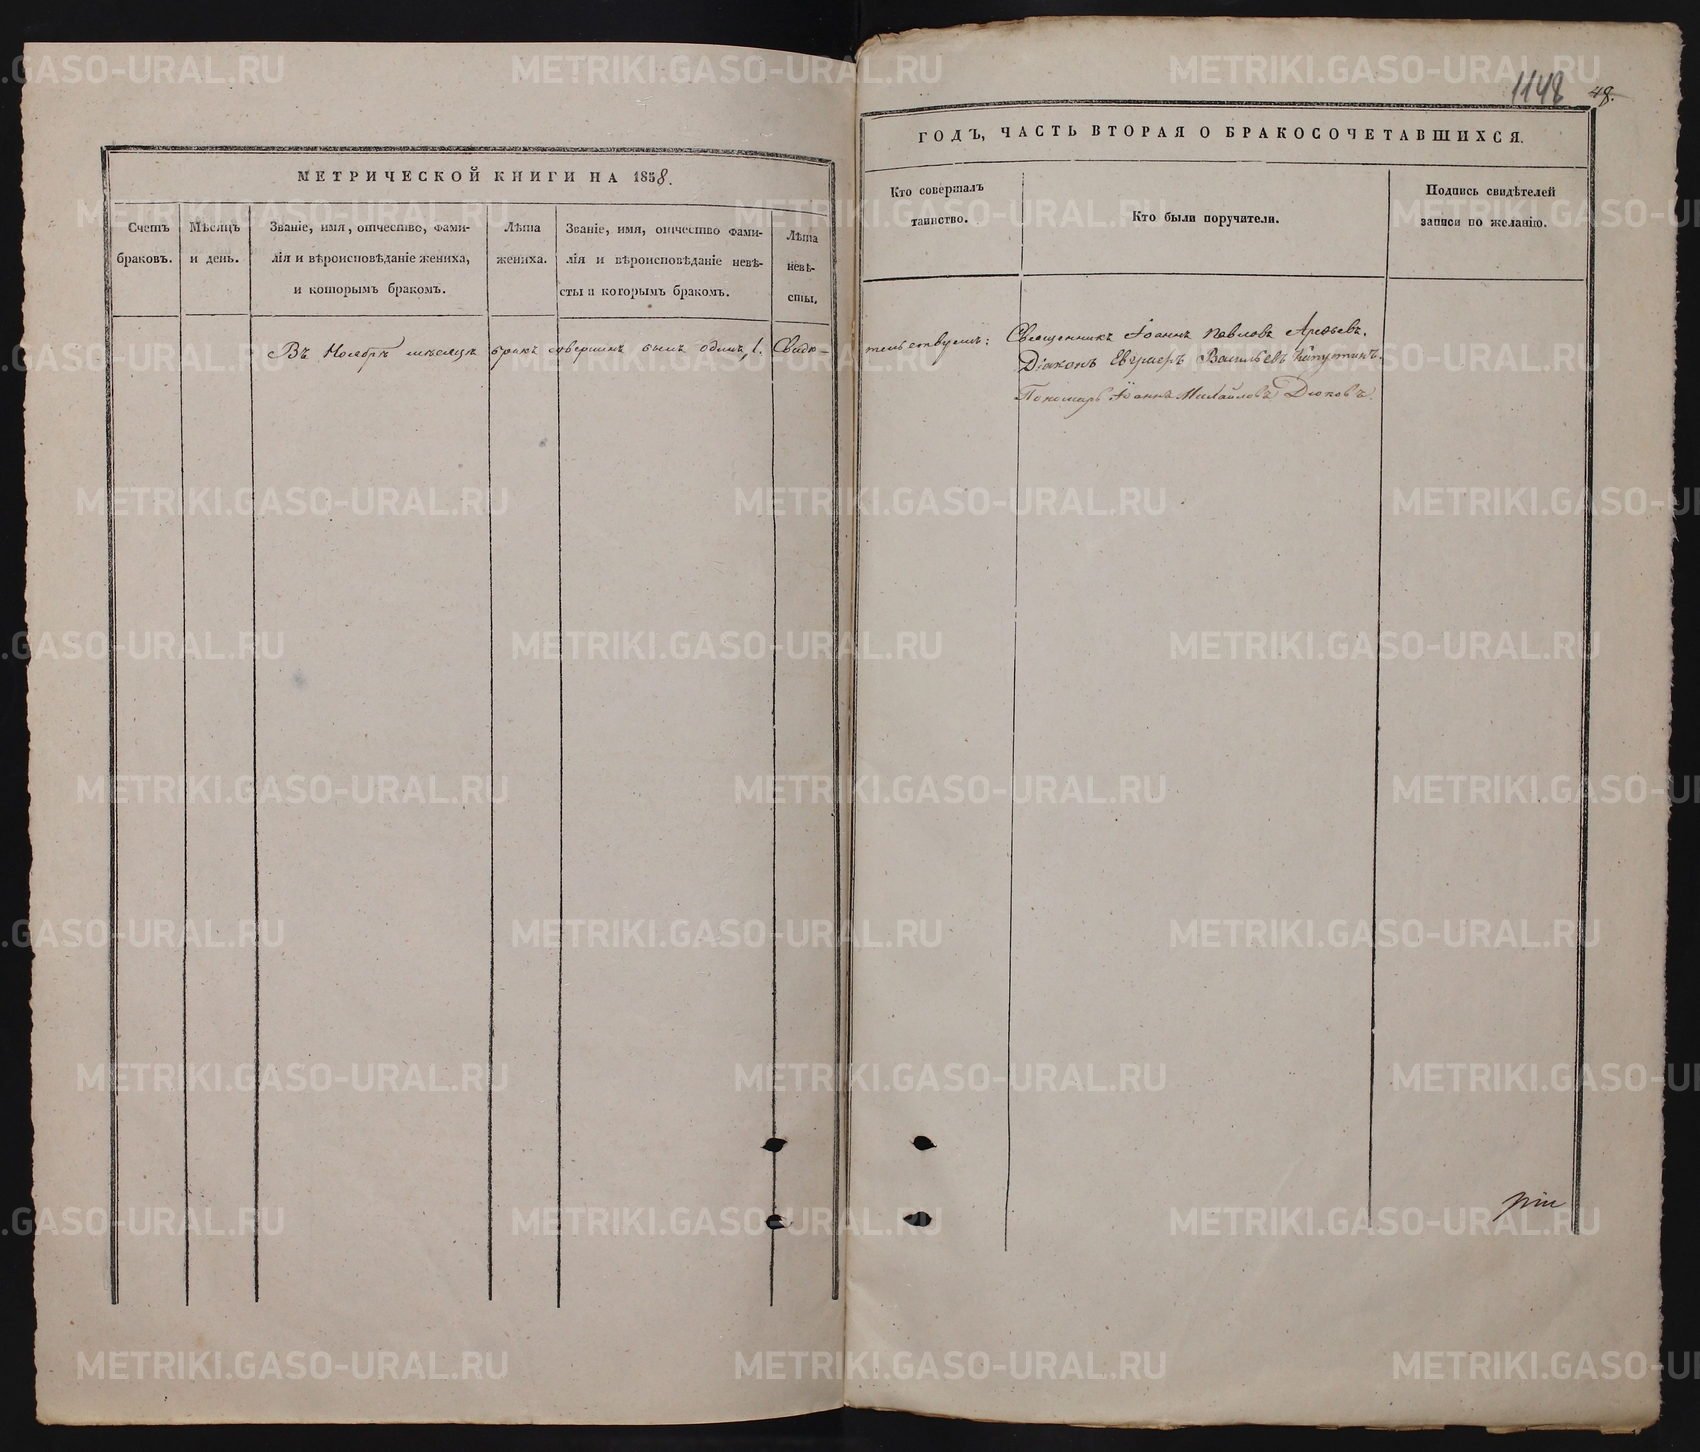 1148 48.
МЕТРИЧЕСКОЙ КНИГИ НА 1858.
Счетъ браковъ.
Мѣсяцъ и день.
Званіе, имя, отчество, фами-
лія и вѣроисповѣданіе жениха,
и которымъ бракомъ.
Лѣта
жениха.
Званіе, имя, отчество фами-
лія и вѣроисповѣданіе невѣ-
сты и которымъ бракомъ.
Лѣта
невѣ-
сты.
Въ Ноябрѣ мѣсяцѣ бракъ совершенъ былъ одинъ, 1. Свидѣ-
ГОДЪ, ЧАСТЬ ВТОРАЯ О БРАКОСОЧЕТАВШИХСЯ.
Кто совершалъ
таинство.
Кто были поручители.
Подпись свидѣтелей
записи по желанію.
тельствуемъ: Священникъ Іоаннъ Павловъ Арефьевъ.
Діаконъ Евгмеръ Васильевъ Капустинъ.
Пономарь Іоаннъ Михайловъ Дюковъ.
METRIKI.GASO-URAL.RU